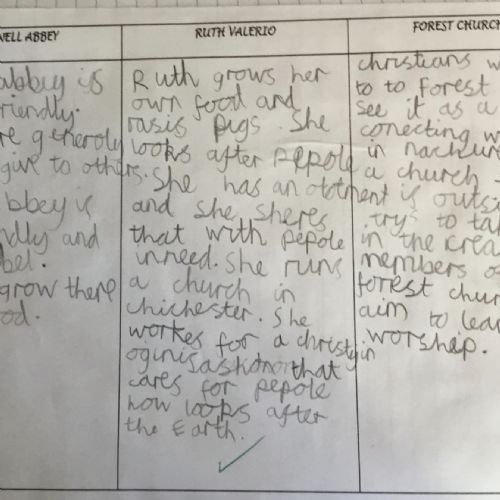 WELL ABBEY
abbey is
riendly.
re generoly
give to others.
bbey is
ndly and
bel.
grow there
od.
RUTH VALERIO
Ruth grows her
own food and
rasis pigs. She
looks after pepole
She has an olotment
and she sheres
that with pepole
inneed. She runs
a church in
chichester. She
workes for a christyin
oginisastion that
cares for pepole
how looks after
the Earth.
FOREST CHURCH
christians w
to to Forest
see it as a
conecting w
in nachure
a church
is outsi
trys to ta
in the crea
members o
forest chur
aim to lear
worship.